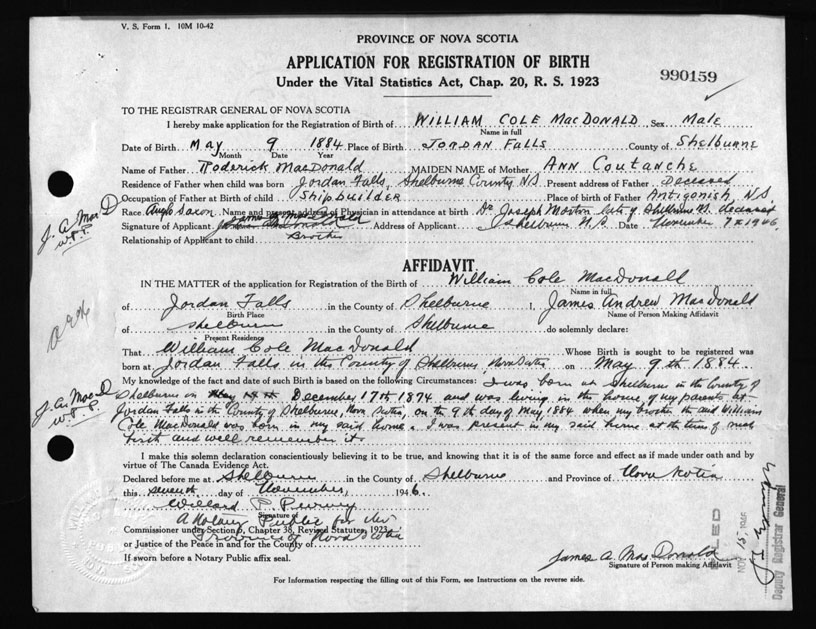 V. S. Form 1. 10M 10-42
PROVINCE OF NOVA SCOTIA
APPLICATION FOR REGISTRATION OF BIRTH
Under the Vital Statistics Act, Chap. 20, R. S. 1923
990159
TO THE REGISTRAR GENERAL OF NOVA SCOTIA
I hereby make application for the Registration of Birth of WILLIAM COLE MacDONALD Sex Male
Name in full
Date of Birth May 9 1884 Place of Birth JORDAN FALLS County of Shelburne
Month Date Year
Name of Father Roderick MacDonald MAIDEN NAME of Mother ANN Coutanche
Residence of Father when child was born Jordan Falls, Shelburne County N.S Present address of Father Deceased
Occupation of Father at Birth of child Shipbuilder Place of birth of Father Antigonish N.S.
Race Anglo Saxon Name and present address of Physician in attendance at birth Dr Joseph Morton late of Shelburne N.S. deceased
J. A. MacD
W.P.P.
Signature of Applicant James A MacDonald Address of Applicant Shelburn N.S. Date November 7th 1946
Relationship of Applicant to child Brother
AFFIDAVIT
IN THE MATTER of the application for Registration of the Birth of William Cole MacDonald
Name in full
of Jordan Falls in the County of Shelburne I, James Andrew MacDonald
Birth Place Name of Person Making Affidavit
of Shelburn in the County of Shelburne do solemnly declare:
Present Residence
That William Cole MacDonald Whose Birth is sought to be registered was
born at Jordan Falls in the County of Shelburne, Nova Scotia on May 9th 1884
My knowledge of the fact and date of Birth is based on the following Circumstances: I was born at Shelburne in the County of
J. A. MacD
W.P.P.
Shelburne on December 17th 1874 and was living in the home of my parents at
Jordan Falls in the County of Shelburne, Nova Scotia, on the 9th day of May, 1884 when my brother the said William
Cole MacDonald was born in my said home. I was present in my said home at the time of such
birth and well remember it.
I make this solemn declaration conscientiously believing it to be true, and knowing that it is of the same force and effect as if made under oath and by
virtue of The Canada Evidence Act.
Declared before me at Shelburne in the County of Shelburne and Province of Nova Scotia
this seventh day of November, 1946.
Willard P. Purney
Signature of
A Notary Public for the
Commissioner under Section 6, Chapter 38, Revised Statutes, 1923
Province of Nova Scotia
or Justice of the Peace in and for the County of
If sworn before a Notary Public affix seal.
James A MacDonald
Signature of Person making Affidavit
NOV 15 1946
Deputy Registrar General
For Information respecting the filling out of this Form, see Instructions on the reverse side.